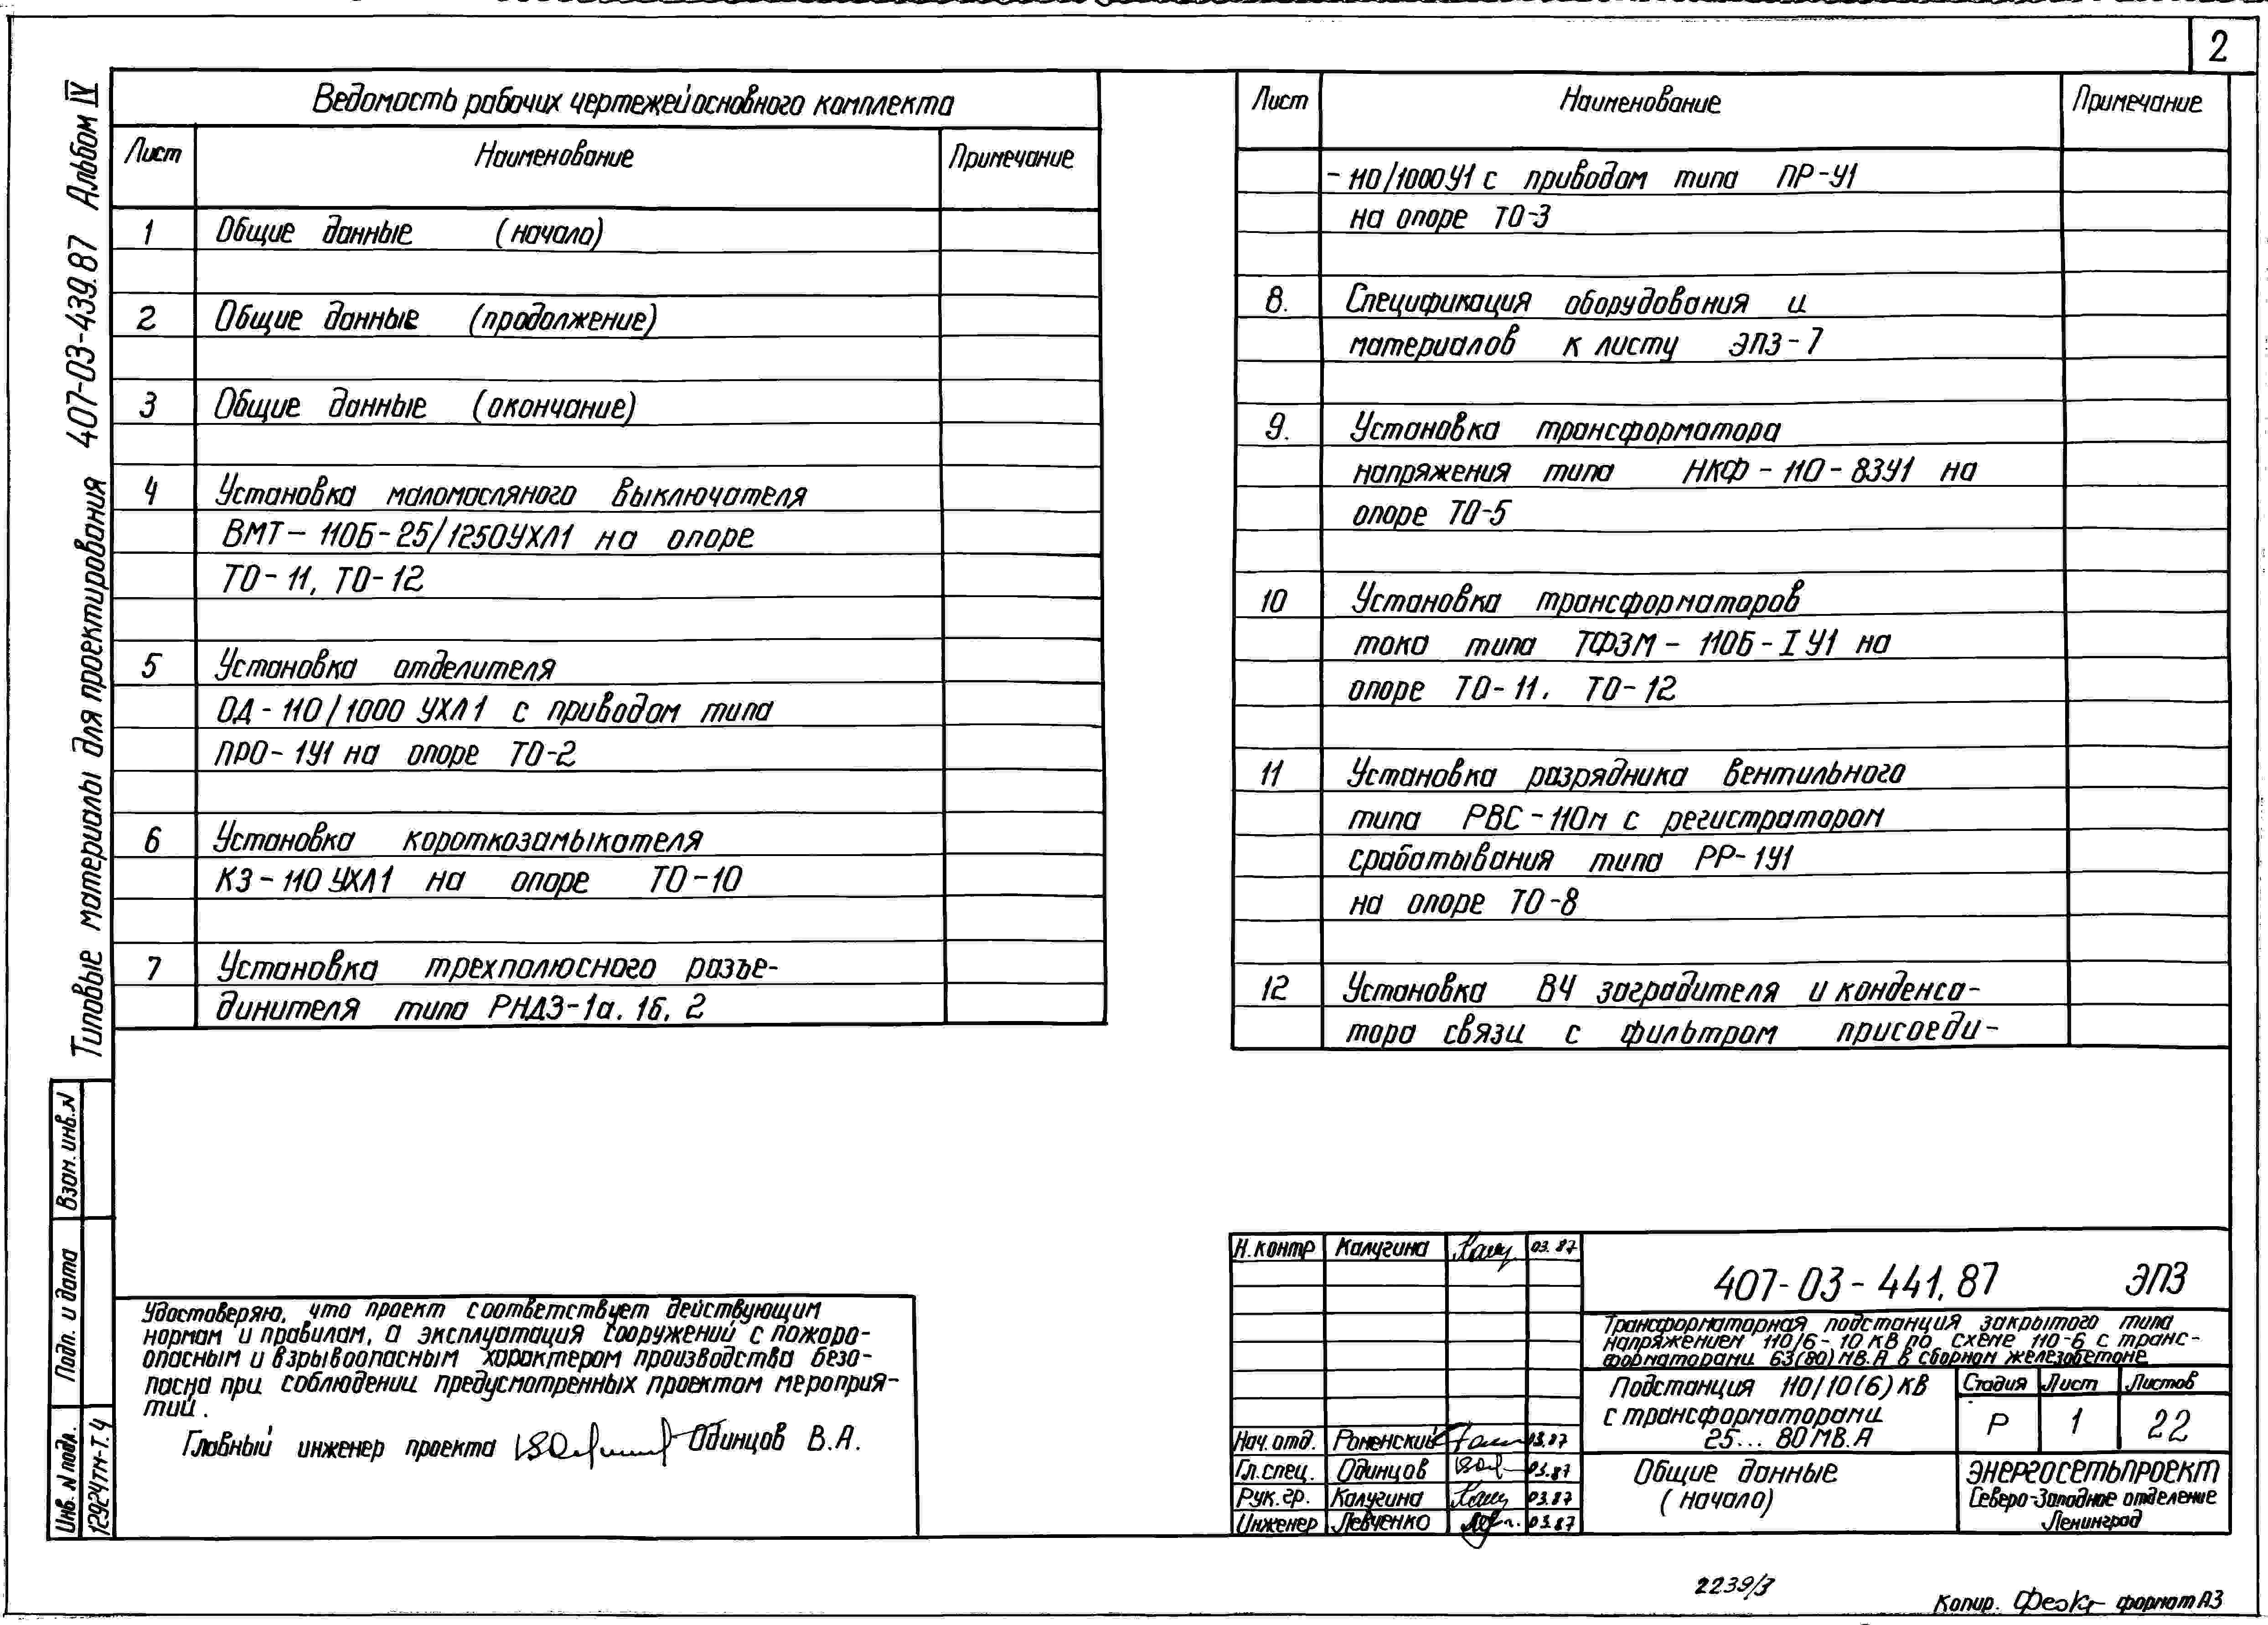 2
Типовые материалы для проектирования 407-03-439.87 Альбом IV
Ведомость рабочих чертежей основного комплекта
Лист Наименование Примечание
1 Общие данные (начало)
2 Общие данные (продолжение)
3 Общие данные (окончание)
4 Установка маломасляного выключателя
ВМТ-110Б-25/1250УХЛ1 на опоре
ТО-11, ТО-12
5 Установка отделителя
ОД-110/1000 УХЛ1 с приводом типа
ПРО-1У1 на опоре ТО-2
6 Установка короткозамыкателя
КЗ-110 УХЛ1 на опоре ТО-10
7 Установка трехполюсного разъе-
динителя типа РНДЗ-1а. 1б, 2
Лист Наименование Примечание
-110/1000У1 с приводом типа ПР-У1
на опоре ТО-3
8. Спецификация оборудования и
материалов к листу ЭПЗ-7
9. Установка трансформатора
напряжения типа НКФ-110-83У1 на
опоре ТО-5
10 Установка трансформаторов
тока типа ТФЗМ-110Б-I У1 на
опоре ТО-11. ТО-12
11 Установка разрядника вентильного
типа РВС-110м с регистратором
срабатывания типа РР-1У1
на опоре ТО-8
12 Установка ВЧ заградителя и конденса-
тора связи с фильтром присоеди-
Взам. инв. N
Подп. и дата
Инв. N подл.
12924тм-т.4
Удостоверяю, что проект соответствует действующим
нормам и правилам, а эксплуатация сооружений с пожаро-
опасным и взрывоопасным характером производства безо-
пасна при соблюдении предусмотренных проектом мероприя-
тий.
Главный инженер проекта Одинцов В.А.
Н.контр Калугина 03.87
Нач.отд. Роменский 03.87
Гл.спец. Одинцов 03.87
Рук.гр. Калугина 03.87
Инженер Левченко 03.87
407-03-441.87 ЭПЗ
Трансформаторная подстанция закрытого типа
напряжением 110/6-10 кВ по схеме 110-6 с транс-
форматорами 63(80) МВ.А в сборном железобетоне
Подстанция 110/10(6) кВ
с трансформаторами
25... 80 МВ.А
Стадия Лист Листов
Р 1 22
Общие данные
(начало)
ЭНЕРГОСЕТЬПРОЕКТ
Северо-Западное отделение
Ленинград
2239/3
Копир. формат А3